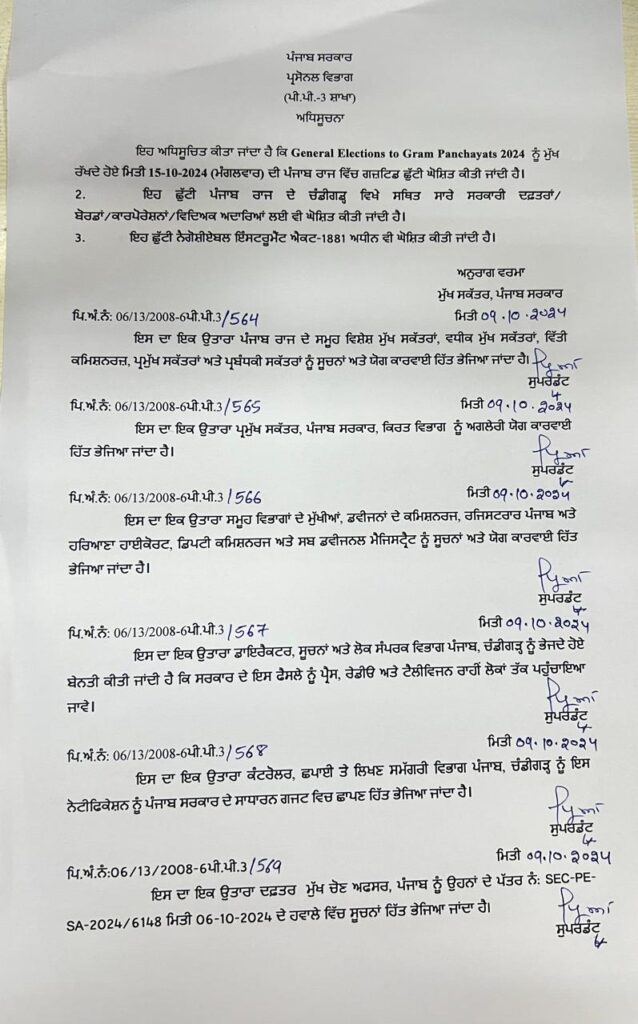 ਪੰਜਾਬ ਸਰਕਾਰ
ਪ੍ਰਸੋਨਲ ਵਿਭਾਗ
(ਪੀ.ਪੀ.-3 ਸ਼ਾਖਾ)
ਅਧਿਸੂਚਨਾ
ਇਹ ਅਧਿਸੂਚਿਤ ਕੀਤਾ ਜਾਂਦਾ ਹੈ ਕਿ General Elections to Gram Panchayats 2024 ਨੂੰ ਮੁੱਖ
ਰੱਖਦੇ ਹੋਏ ਮਿਤੀ 15-10-2024 (ਮੰਗਲਵਾਰ) ਦੀ ਪੰਜਾਬ ਰਾਜ ਵਿੱਚ ਗਜ਼ਟਿਡ ਛੁੱਟੀ ਘੋਸ਼ਿਤ ਕੀਤੀ ਜਾਂਦੀ ਹੈ।
2. ਇਹ ਛੁੱਟੀ ਪੰਜਾਬ ਰਾਜ ਦੇ ਚੰਡੀਗੜ੍ਹ ਵਿਖੇ ਸਥਿਤ ਸਾਰੇ ਸਰਕਾਰੀ ਦਫ਼ਤਰਾਂ/
ਬੋਰਡਾਂ/ਕਾਰਪੋਰੇਸ਼ਨਾਂ/ਵਿਦਿਅਕ ਅਦਾਰਿਆਂ ਲਈ ਵੀ ਘੋਸ਼ਿਤ ਕੀਤੀ ਜਾਂਦੀ ਹੈ।
3. ਇਹ ਛੁੱਟੀ ਨੈਗੋਸ਼ੀਏਬਲ ਇੰਸਟਰੂਮੈਂਟ ਐਕਟ-1881 ਅਧੀਨ ਵੀ ਘੋਸ਼ਿਤ ਕੀਤੀ ਜਾਂਦੀ ਹੈ।
ਅਨੁਰਾਗ ਵਰਮਾ
ਮੁੱਖ ਸਕੱਤਰ, ਪੰਜਾਬ ਸਰਕਾਰ
ਪਿ.ਅੰ.ਨੰ: 06/13/2008-6ਪੀ.ਪੀ.3/564 ਮਿਤੀ 09.10.2024
ਇਸ ਦਾ ਇਕ ਉਤਾਰਾ ਪੰਜਾਬ ਰਾਜ ਦੇ ਸਮੂਹ ਵਿਸ਼ੇਸ਼ ਮੁੱਖ ਸਕੱਤਰਾਂ, ਵਧੀਕ ਮੁੱਖ ਸਕੱਤਰਾਂ, ਵਿੱਤੀ
ਕਮਿਸ਼ਨਰਜ਼, ਪ੍ਰਮੁੱਖ ਸਕੱਤਰਾਂ ਅਤੇ ਪ੍ਰਬੰਧਕੀ ਸਕੱਤਰਾਂ ਨੂੰ ਸੂਚਨਾਂ ਅਤੇ ਯੋਗ ਕਾਰਵਾਈ ਹਿੱਤ ਭੇਜਿਆ ਜਾਂਦਾ ਹੈ।
ਸੁਪਰਡੰਟ
ਪਿ.ਅੰ.ਨੰ: 06/13/2008-6ਪੀ.ਪੀ.3/565 ਮਿਤੀ 09.10.2024
ਇਸ ਦਾ ਇਕ ਉਤਾਰਾ ਪ੍ਰਮੁੱਖ ਸਕੱਤਰ, ਪੰਜਾਬ ਸਰਕਾਰ, ਕਿਰਤ ਵਿਭਾਗ ਨੂੰ ਅਗਲੇਰੀ ਯੋਗ ਕਾਰਵਾਈ
ਹਿੱਤ ਭੇਜਿਆ ਜਾਂਦਾ ਹੈ।
ਸੁਪਰਡੰਟ
ਪਿ.ਅੰ.ਨੰ: 06/13/2008-6ਪੀ.ਪੀ.3/566 ਮਿਤੀ 09.10.2024
ਇਸ ਦਾ ਇਕ ਉਤਾਰਾ ਸਮੂਹ ਵਿਭਾਗਾਂ ਦੇ ਮੁੱਖੀਆਂ, ਡਵੀਜਨਾਂ ਦੇ ਕਮਿਸ਼ਨਰਜ, ਰਜਿਸਟਰਾਰ ਪੰਜਾਬ ਅਤੇ
ਹਰਿਆਣਾ ਹਾਈਕੋਰਟ, ਡਿਪਟੀ ਕਮਿਸ਼ਨਰਜ ਅਤੇ ਸਬ ਡਵੀਜਨਲ ਮੈਜਿਸਟ੍ਰੈਟ ਨੂੰ ਸੂਚਨਾਂ ਅਤੇ ਯੋਗ ਕਾਰਵਾਈ ਹਿੱਤ
ਭੇਜਿਆ ਜਾਂਦਾ ਹੈ।
ਸੁਪਰਡੰਟ
ਪਿ.ਅੰ.ਨੰ: 06/13/2008-6ਪੀ.ਪੀ.3/567 ਮਿਤੀ 09.10.2024
ਇਸ ਦਾ ਇਕ ਉਤਾਰਾ ਡਾਇਰੈਕਟਰ, ਸੂਚਨਾਂ ਅਤੇ ਲੋਕ ਸੰਪਰਕ ਵਿਭਾਗ ਪੰਜਾਬ, ਚੰਡੀਗੜ੍ਹ ਨੂੰ ਭੇਜਦੇ ਹੋਏ
ਬੇਨਤੀ ਕੀਤੀ ਜਾਂਦੀ ਹੈ ਕਿ ਸਰਕਾਰ ਦੇ ਇਸ ਫੈਸਲੇ ਨੂੰ ਪ੍ਰੈਸ, ਰੇਡੀਓ ਅਤੇ ਟੈਲੀਵਿਜਨ ਰਾਹੀਂ ਲੋਕਾਂ ਤੱਕ ਪਹੁੰਚਾਇਆ
ਜਾਵੇ।
ਸੁਪਰਡੰਟ
ਪਿ.ਅੰ.ਨੰ: 06/13/2008-6ਪੀ.ਪੀ.3/568 ਮਿਤੀ 09.10.2024
ਇਸ ਦਾ ਇਕ ਉਤਾਰਾ ਕੰਟਰੋਲਰ, ਛਪਾਈ ਤੇ ਲਿਖਣ ਸਮੱਗਰੀ ਵਿਭਾਗ ਪੰਜਾਬ, ਚੰਡੀਗੜ੍ਹ ਨੂੰ ਇਸ
ਨੋਟੀਫਿਕੇਸ਼ਨ ਨੂੰ ਪੰਜਾਬ ਸਰਕਾਰ ਦੇ ਸਾਧਾਰਨ ਗਜਟ ਵਿਚ ਛਾਪਣ ਹਿੱਤ ਭੇਜਿਆ ਜਾਂਦਾ ਹੈ।
ਸੁਪਰਡੰਟ
ਪਿ.ਅੰ.ਨੰ:06/13/2008-6ਪੀ.ਪੀ.3/569 ਮਿਤੀ 09.10.2024
ਇਸ ਦਾ ਇਕ ਉਤਾਰਾ ਦਫ਼ਤਰ ਮੁੱਖ ਚੋਣ ਅਫਸਰ, ਪੰਜਾਬ ਨੂੰ ਉਹਨਾਂ ਦੇ ਪੱਤਰ ਨੰ: SEC-PE-
SA-2024/6148 ਮਿਤੀ 06-10-2024 ਦੇ ਹਵਾਲੇ ਵਿੱਚ ਸੂਚਨਾਂ ਹਿੱਤ ਭੇਜਿਆ ਜਾਂਦਾ ਹੈ।
ਸੁਪਰਡੰਟ